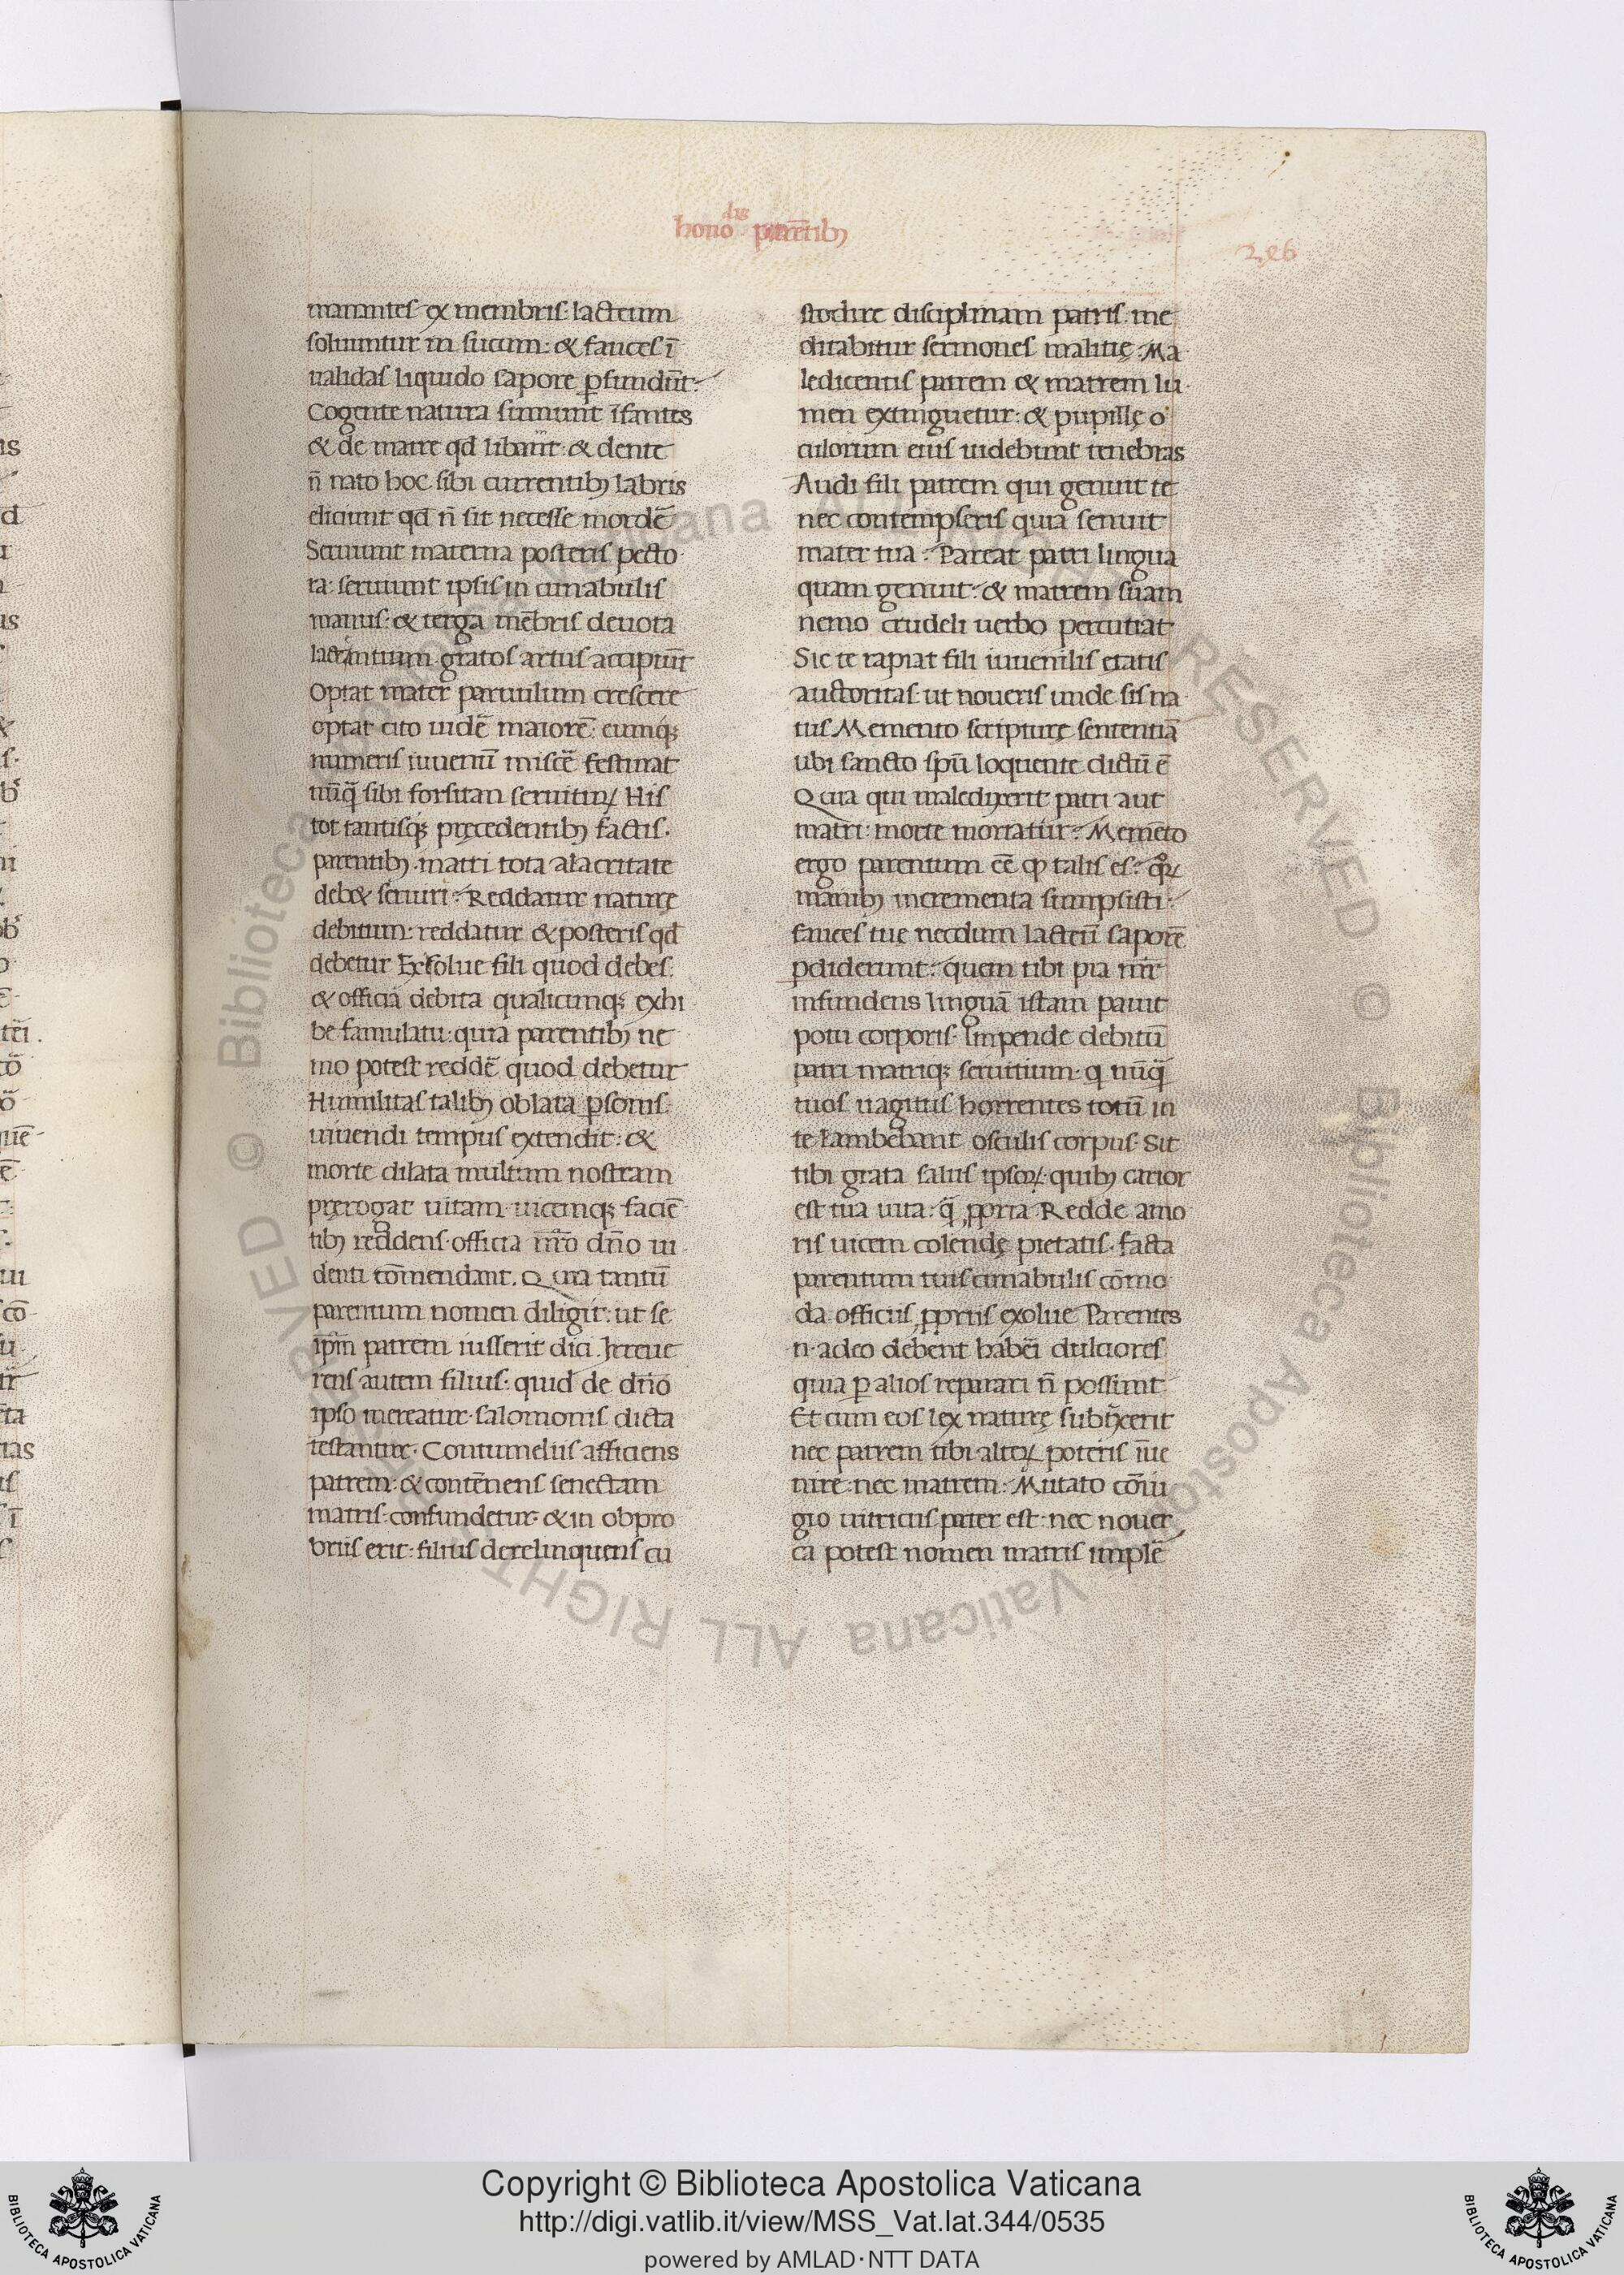 hono dis parētib;
256
manantes ex membris lacteum
soluuntur in sucum: & fauces ī
ualidas liquido sapore ꝑfundūt.
Cogente natura sumunt īfantes
& de matre qd libant: & dente
n̄ nato hoc sibi currentib; labris
eliciunt qd n̄ sit necesse mordē
Seruiunt materna posteris pecto
ra: seruiunt ipsis in cunabulis
manus: & terga mēbris deuota
lactantium gratos artus accipiūt
Optat mater paruulum crescere
optat cito uidē maiorē: eumq;
numeris iuuenū miscē festinat
nūq̄ sibi forsitan seruiturꝝ His
tot tantisq; pręcedentib; factis.
parentib; matri tota alacritate
deb& seruiri. Reddatur naturę
debitum: reddatur & posteris qd
debetur Exsolue fili quod debes.
& officia debita qualicumq; exhi
be famulatu: quia parentib; ne
mo potest reddē quod debetur
Humilitas talib; oblata ꝑsonis.
uiuendi tempus extendit: &
morte dilata multum nostram
pręrogat uitam uicemq; faciē
tib; reddens officia nr̄o dn̄o ui
denti cōmendant. Quia tantū
parentum nomen diligit: ut se
ipm̄ patrem iusserit dici. Irreue
rens autem filius: quid de dn̄o
ipso mereatur salomonis dicta
testantur. Contumeliis afficiens
patrem: & contēnens senectam
matris confundetur & in obpro
briis erit: filius derelinquens cu
stodire disciplinam patris me
ditabitur sermones malitię. Ma
ledicentis patrem & matrem lu
men extinguetur: & pupillę o
culorum eius uidebunt tenebras
Audi fili patrem qui genuit te
nec contempseris quia senuit
mater tua. Pareat patri lingua
quam genuit: & matrem suam
nemo crudeli uerbo percutiat
Sic te rapiat fili iuuenilis etatis
auctoritas ut noueris unde sis na
tus Memento scripturę sententiā
ubi sancto spū loquente dictū ē
Quia qui maledixerit patri aut
matri: morte moriatur. Memēto
ergo parentum eē ꝙ talis es: quoꝝ
manib; incrementa sumpsisti.
fauces tue necdum lacteū saporē
ꝑdiderunt: quem tibi pia mr̄
infundens linguā istam pauit
potu corporis. Impende debitū
patri matriq; seruitium: q nūq̄
tuos uagitus horrentes totū in
te lambebant osculis corpus. Sit
tibi grata salus ipsoꝝ quib; carior
est tua uita: q̄ ꝓpria. Redde amo
ris uicem colendę pietatis. facta
parentum tuis cunabulis cōmo
da officiis ꝓpriis exolue Parentes
n̄ adeo debent habēi dulciores
quia ꝑ alios reparari n̄ possunt
Et cum eos lex naturę subtraxerit
nec patrem tibi alteꝝ poteris īue
nire: nec matrem. Mutato cōiu
gio uitricus pater est: nec nouer
ca potest nomen matris implē
Copyright © Biblioteca Apostolica Vaticana
http://digi.vatlib.it/view/MSS_Vat.lat.344/0535
powered by AMLAD·NTT DATA